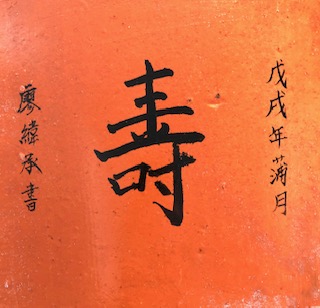 戊戌年蒲月
壽
廖緯承書